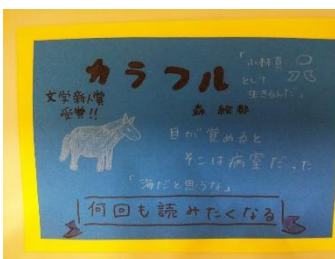 カラフル
「小林真
として
生きるんだ」
文学新人賞
受賞!!
森 絵都
目が覚めると
そこは病室だった
「海だと思うな」
何回も読みたくなる